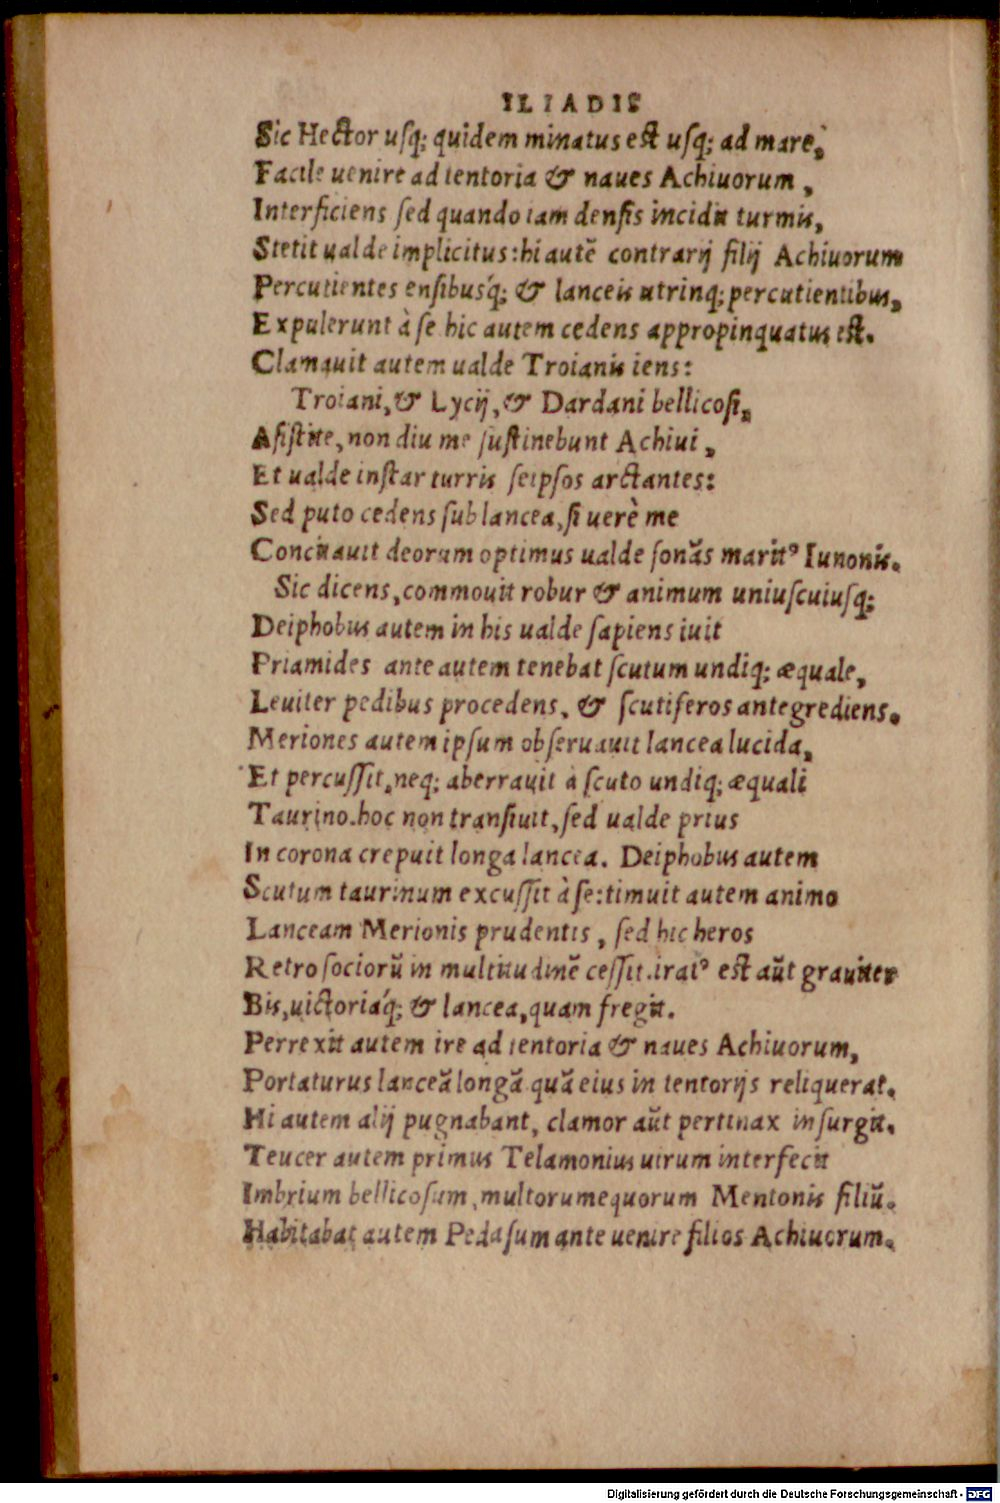 ILIADIS
Sic Hector uſq; quidem minatus eſt uſq; ad mare,
Facile uenire ad tentoria & naues Achiuorum,
Interficiens ſed quando iam denſis incidit turmis,
Stetit ualde implicitus: hi autē contrarij filij Achiuorum
Percutientes enſibusq́; & lanceis utrinq; percutientibus,
Expulerunt à ſe hic autem cedens appropinquatus eſt.
Clamauit autem ualde Troianis iens:
Troiani, & Lycij, & Dardani bellicoſi,
Aſiſtite, non diu me ſuſtinebunt Achiui,
Et ualde inſtar turris ſeipſos arctantes:
Sed puto cedens ſub lancea, ſi uerè me
Concitauit deorum optimus ualde ſonãs maritꝰ Iunonis.
Sic dicens, commouit robur & animum uniuſcuiuſq;
Deiphobus autem in his ualde ſapiens iuit
Priamides ante autem tenebat ſcutum undiq; æquale,
Leuiter pedibus procedens, & ſcutiferos antegrediens.
Meriones autem ipſum obſeruauit lancea lucida,
Et percuſſit, neq; aberrauit à ſcuto undiq; æquali
Taurino. hoc non tranſiuit, ſed ualde prius
In corona crepuit longa lancea. Deiphobus autem
Scutum taurinum excuſſit à ſe: timuit autem animo
Lanceam Merionis prudentis, ſed hic heros
Retro ſociorũ in multitudinē ceſſit. iratꝰ eſt aũt grauiter
Bis, uictoriaq́; & lancea, quam fregit.
Perrexit autem ire ad tentoria & naues Achiuorum,
Portaturus lanceã longã quã eius in tentorijs reliquerat.
Hi autem alij pugnabant, clamor aũt pertinax inſurgit.
Teucer autem primus Telamonius uirum interfecit
Imbrium bellicoſum, multorum equorum Mentonis filiũ.
Habitabat autem Pedaſum ante uenire filios Achiuorum.
Digitalisierung gefördert durch die Deutsche Forschungsgemeinschaft - DFG